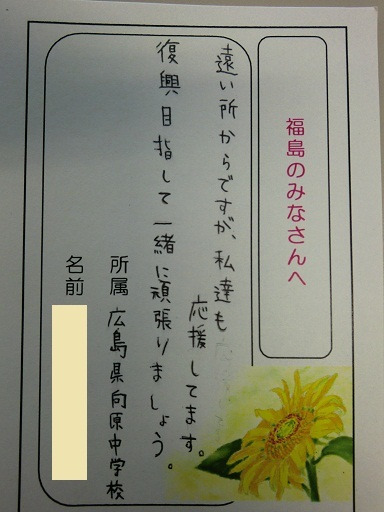 福島のみなさんへ
遠い所からですが、私達も
応援してます。
復興目指して一緒に頑張りましょう。
所属 広島県向原中学校
名前